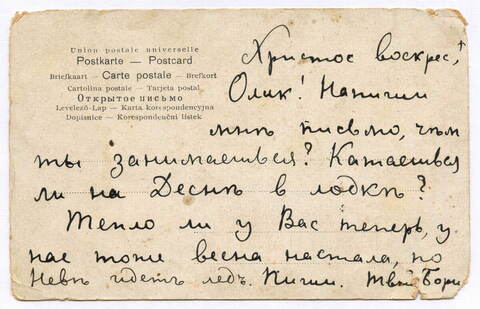 Union postale universelle
Postkarte — Postcard
Briefkaart — Carte postale — Brefkort
Cartolina postale — Tarjeta postal
Открытое письмо
Levelező-Lap — Karta korespondencyjna
Dopisnice — Korespondenční lístek
Христос воскрес,
Олик! Напиши
мнѣ письмо, чѣмъ
ты занимаешься? Катаешься
ли на Деснѣ в лодкѣ?
Тепло ли у Вас теперь, у
нас тоже весна настала, по
Невѣ идетъ ледъ. Пиши. Твой Бори